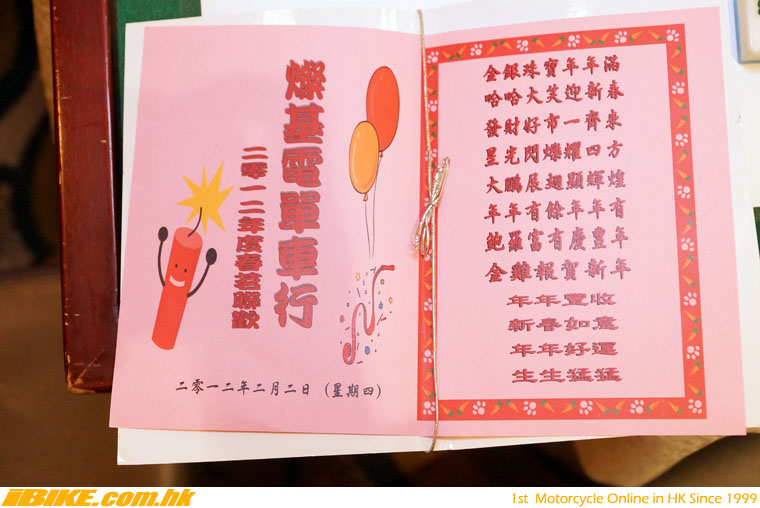 燦基電單車行
二零一二年度春茗聯歡
二零一二年二月二日（星期四）
金銀珠寶年年滿
哈哈大笑迎新春
發財好市一齊來
星光閃燦耀四方
大鵬展翅顯輝煌
年年有餘年年有
鮑羅富有慶豊年
金雞報賀新年
年年豐收
新春如意
年年好運
生生猛猛
iBIKE.com.hk
1st Motorcycle Online in HK Since 1999